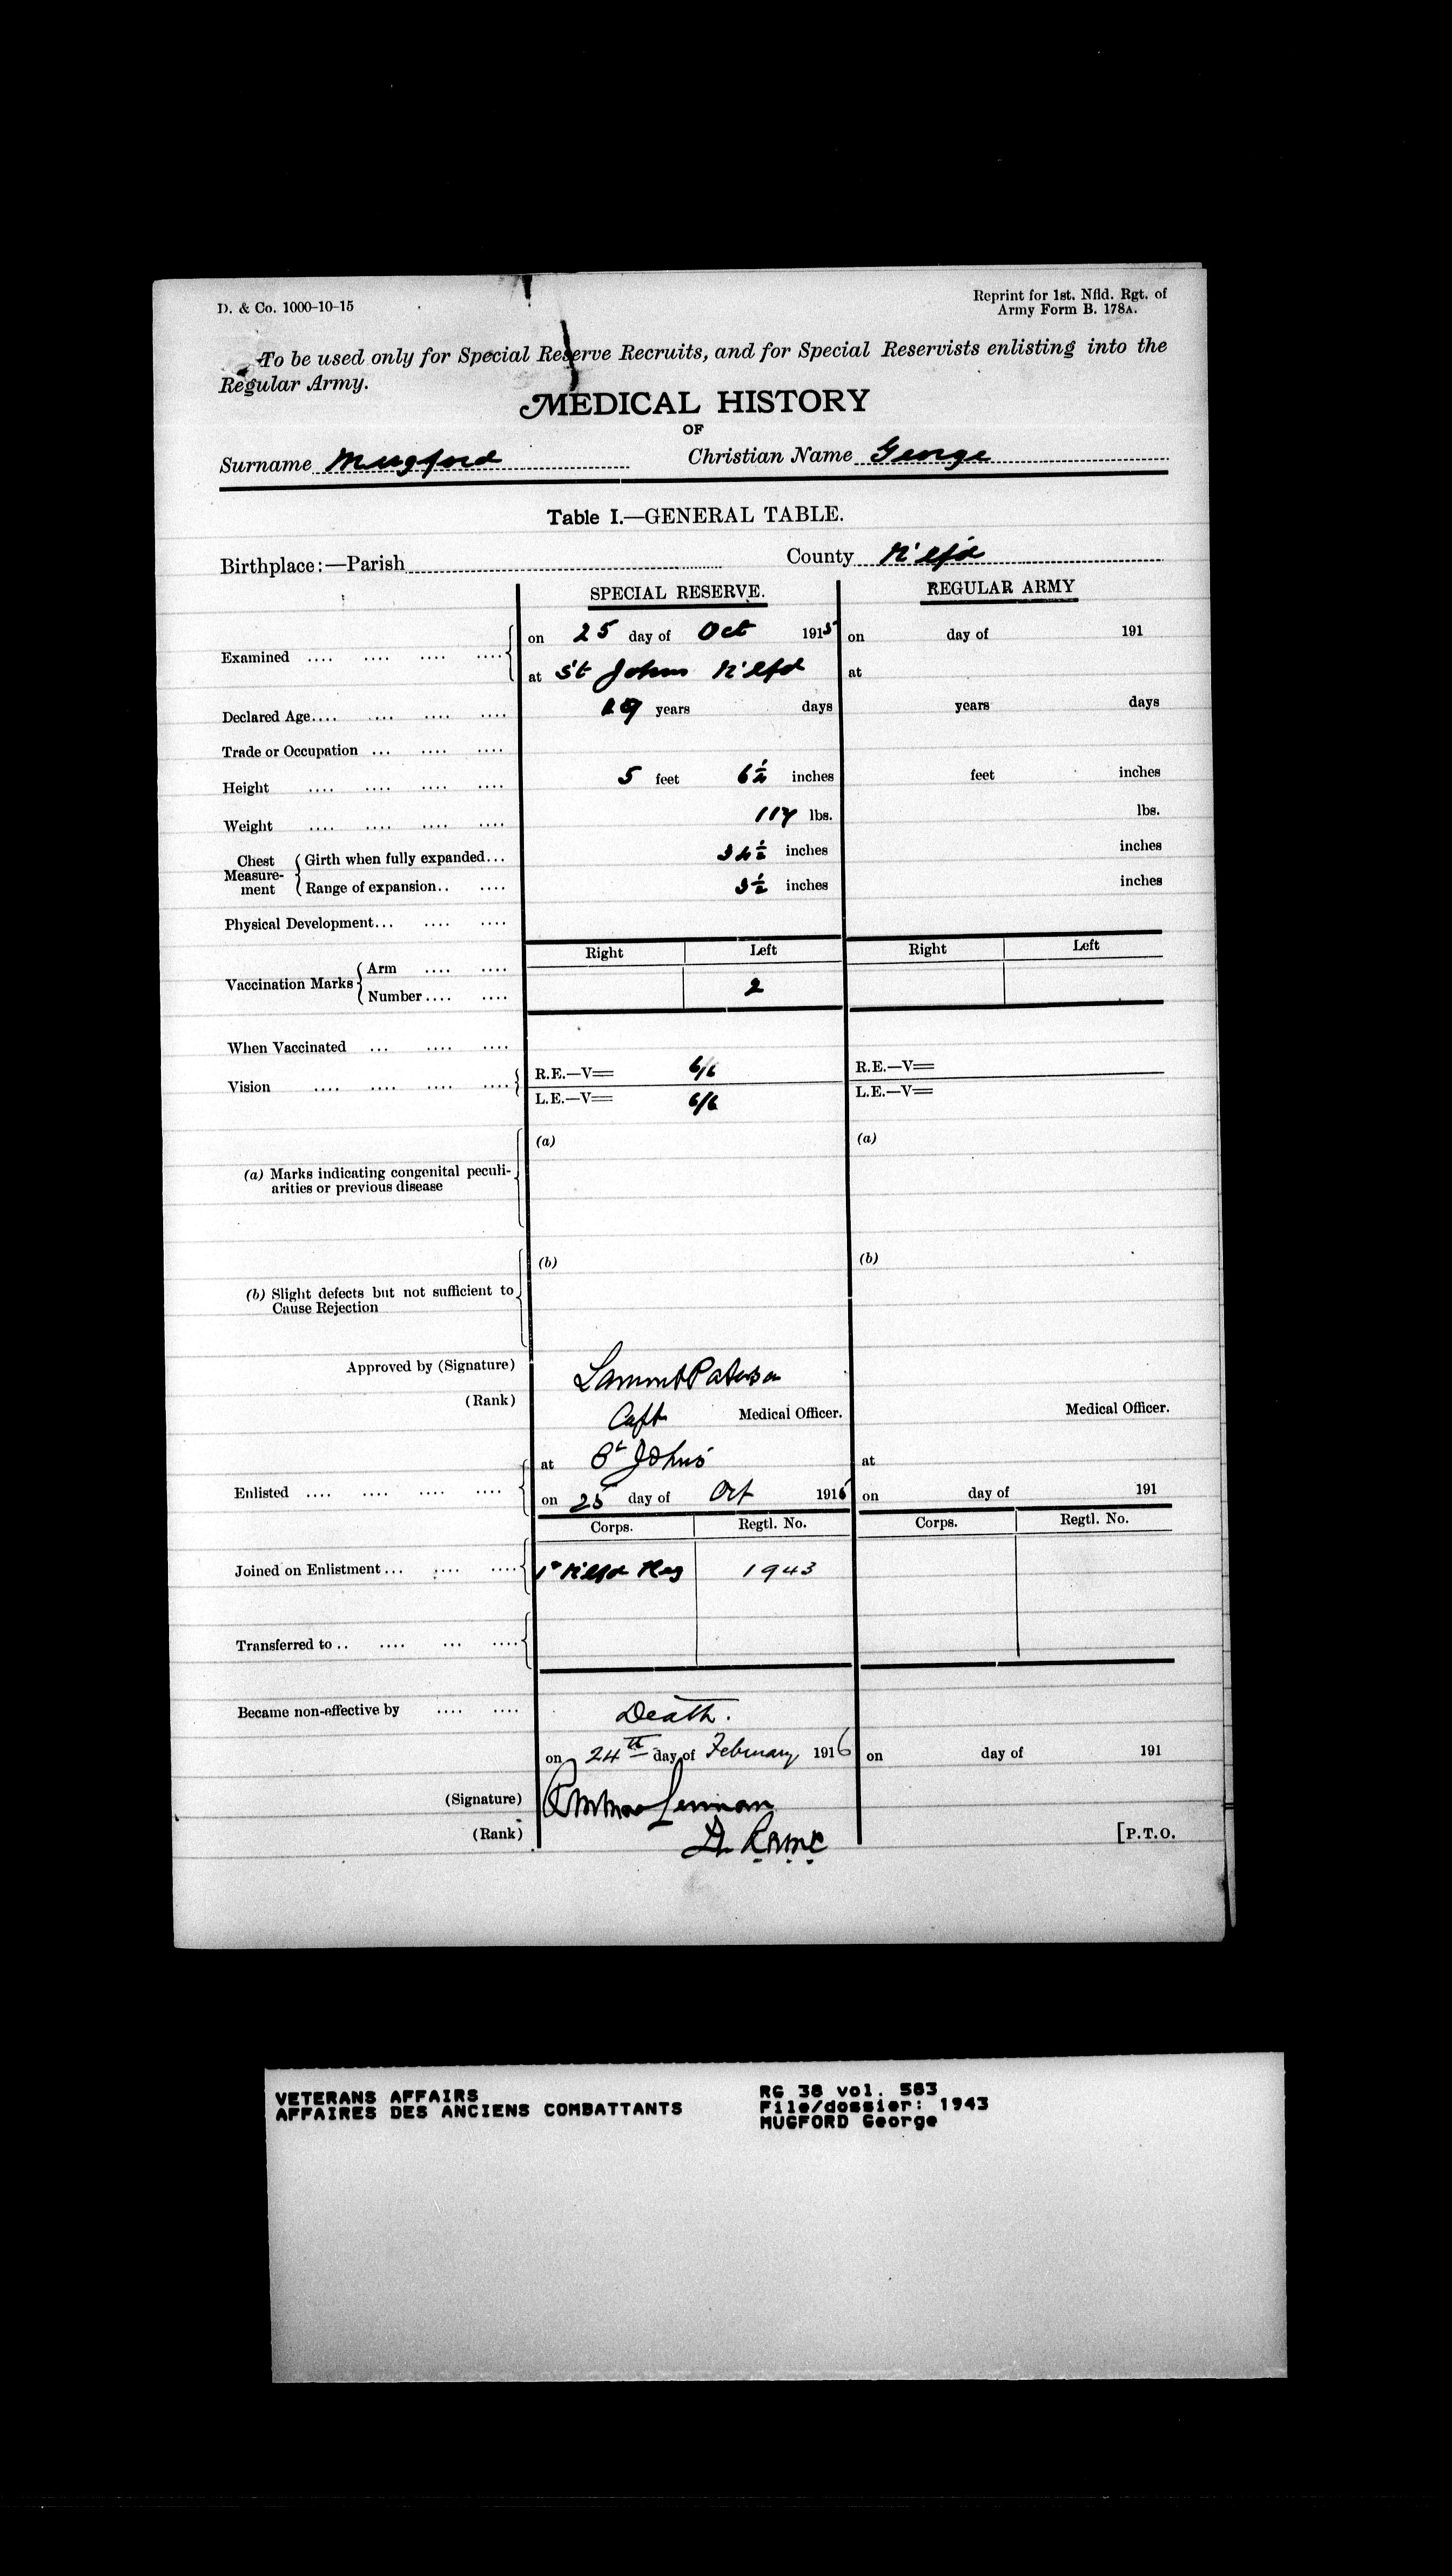 D. & Co. 1000-10-15
Reprint for 1st. Nfld. Rgt. of
Army Form B. 178A.
To be used only for Special Reserve Recruits, and for Special Reservists enlisting into the
Regular Army.
MEDICAL HISTORY
OF
Surname Mugford Christian Name George
Table I.—GENERAL TABLE.
Birthplace:—Parish County N'lfd
SPECIAL RESERVE. REGULAR ARMY
Examined .... .... .... .... on 25 day of Oct 1915 on day of 191
at St Johns N'lfd at
Declared Age.... .... .... .... years days years days
Trade or Occupation ... .... ....
Height .... .... .... .... 5 feet 6½ inches feet inches
Weight .... .... .... .... 117 lbs. lbs.
Chest Measurement Girth when fully expanded... 34½ inches inches
Range of expansion.. .... 3½ inches inches
Physical Development... .... ....
Right Left Right Left
Vaccination Marks Arm .... ....
Number.... .... 2
When Vaccinated ... .... ....
Vision .... .... .... .... R.E.—V= 6/6 R.E.—V=
L.E.—V= 6/6 L.E.—V=
(a) (a)
(a) Marks indicating congenital peculi-
arities or previous disease
(b) (b)
(b) Slight defects but not sufficient to
Cause Rejection
Approved by (Signature) Lamont Paterson
(Rank) Capt Medical Officer. Medical Officer.
at St Johns at
Enlisted .... .... .... .... on 25 day of Oct 191 on day of 191
Corps. Regtl. No. Corps. Regtl. No.
Joined on Enlistment... .... .... 1st N'lfd Reg 1943
Transferred to .. .... ... ....
Became non-effective by .... .... Death.
on 24th day of February 1916 on day of 191
(Signature)
(Rank) Lt. R.A.M.C
[P.T.O.
VETERANS AFFAIRS
AFFAIRES DES ANCIENS COMBATTANTS
RG 38 vol. 583
File/dossier: 1943
MUGFORD George